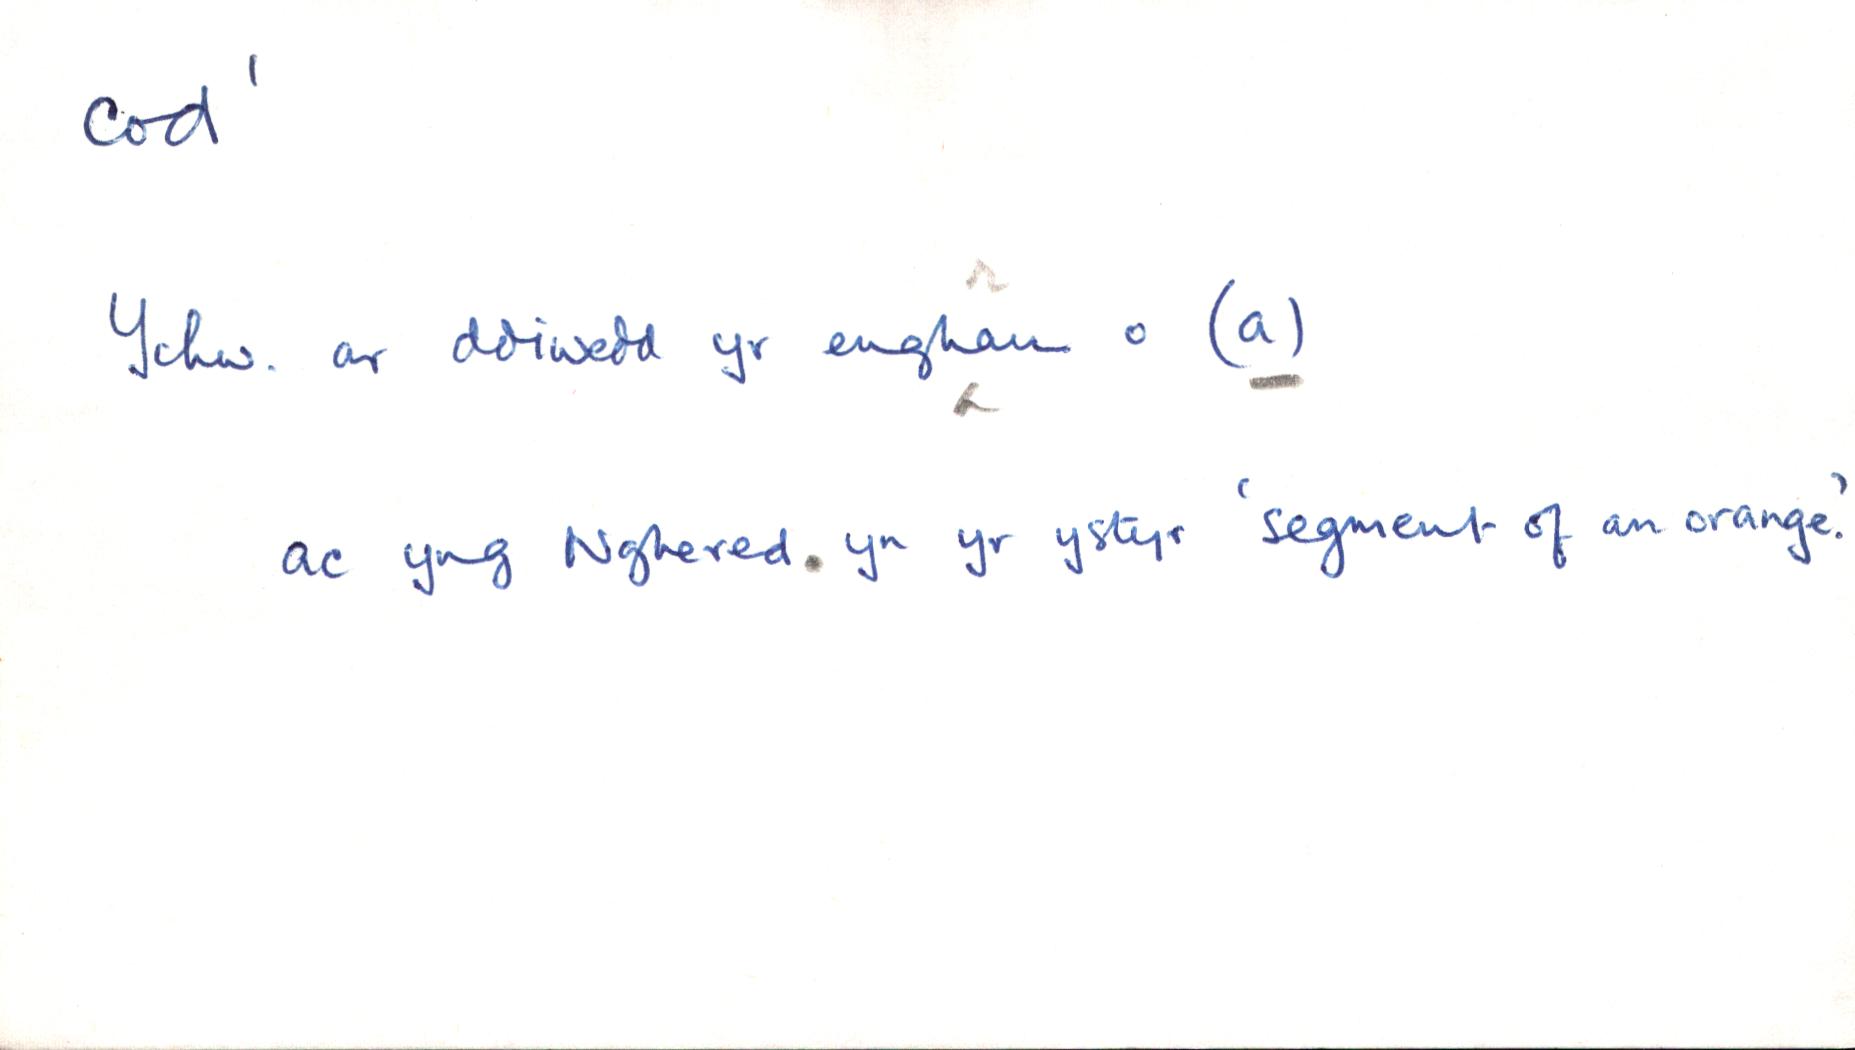 cod¹
Ychw. ar ddiwedd yr enghau o (a)
r
ac yng Nghered. yn yr ystyr 'segment of an orange.'